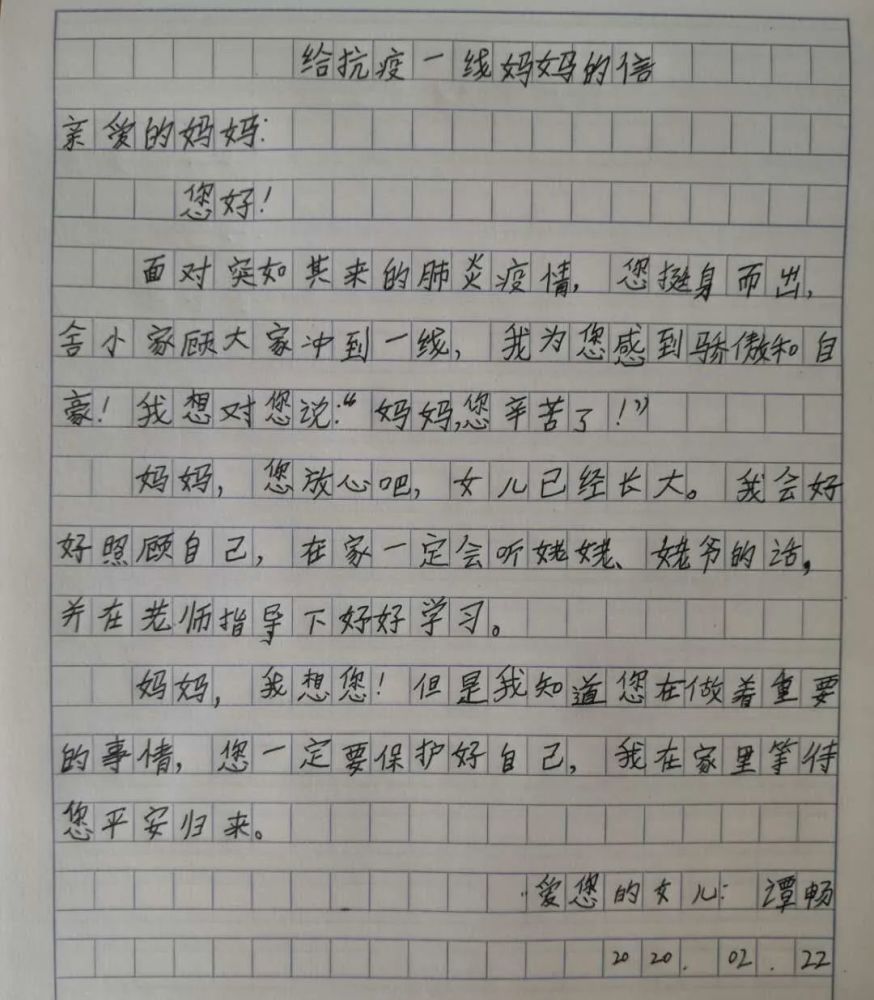 给抗疫一线妈妈的信
亲爱的妈妈:
您好!
面对突如其来的肺炎疫情,您挺身而出,
舍小家顾大家冲到一线,我为您感到骄傲和自
豪!我想对您说:“妈妈,您辛苦了!”
妈妈,您放心吧,女儿已经长大。我会好
好照顾自己,在家一定会听姥姥、姥爷的话,
并在老师指导下好好学习。
妈妈,我想您!但是我知道您在做着重要
的事情,您一定要保护好自己,我在家里等待
您平安归来。
爱您的女儿:谭畅
2020.02.22